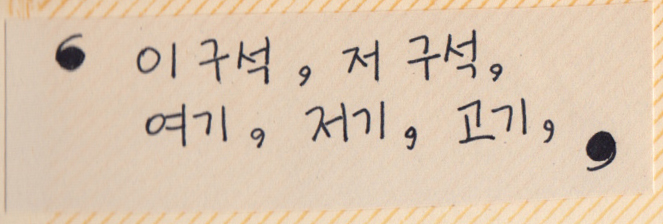 ‘ 이 구석, 저 구석,
여기, 저기, 고기, ’